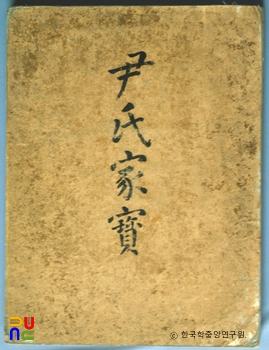 尹氏家寶
ⓒ 한국학중앙연구원